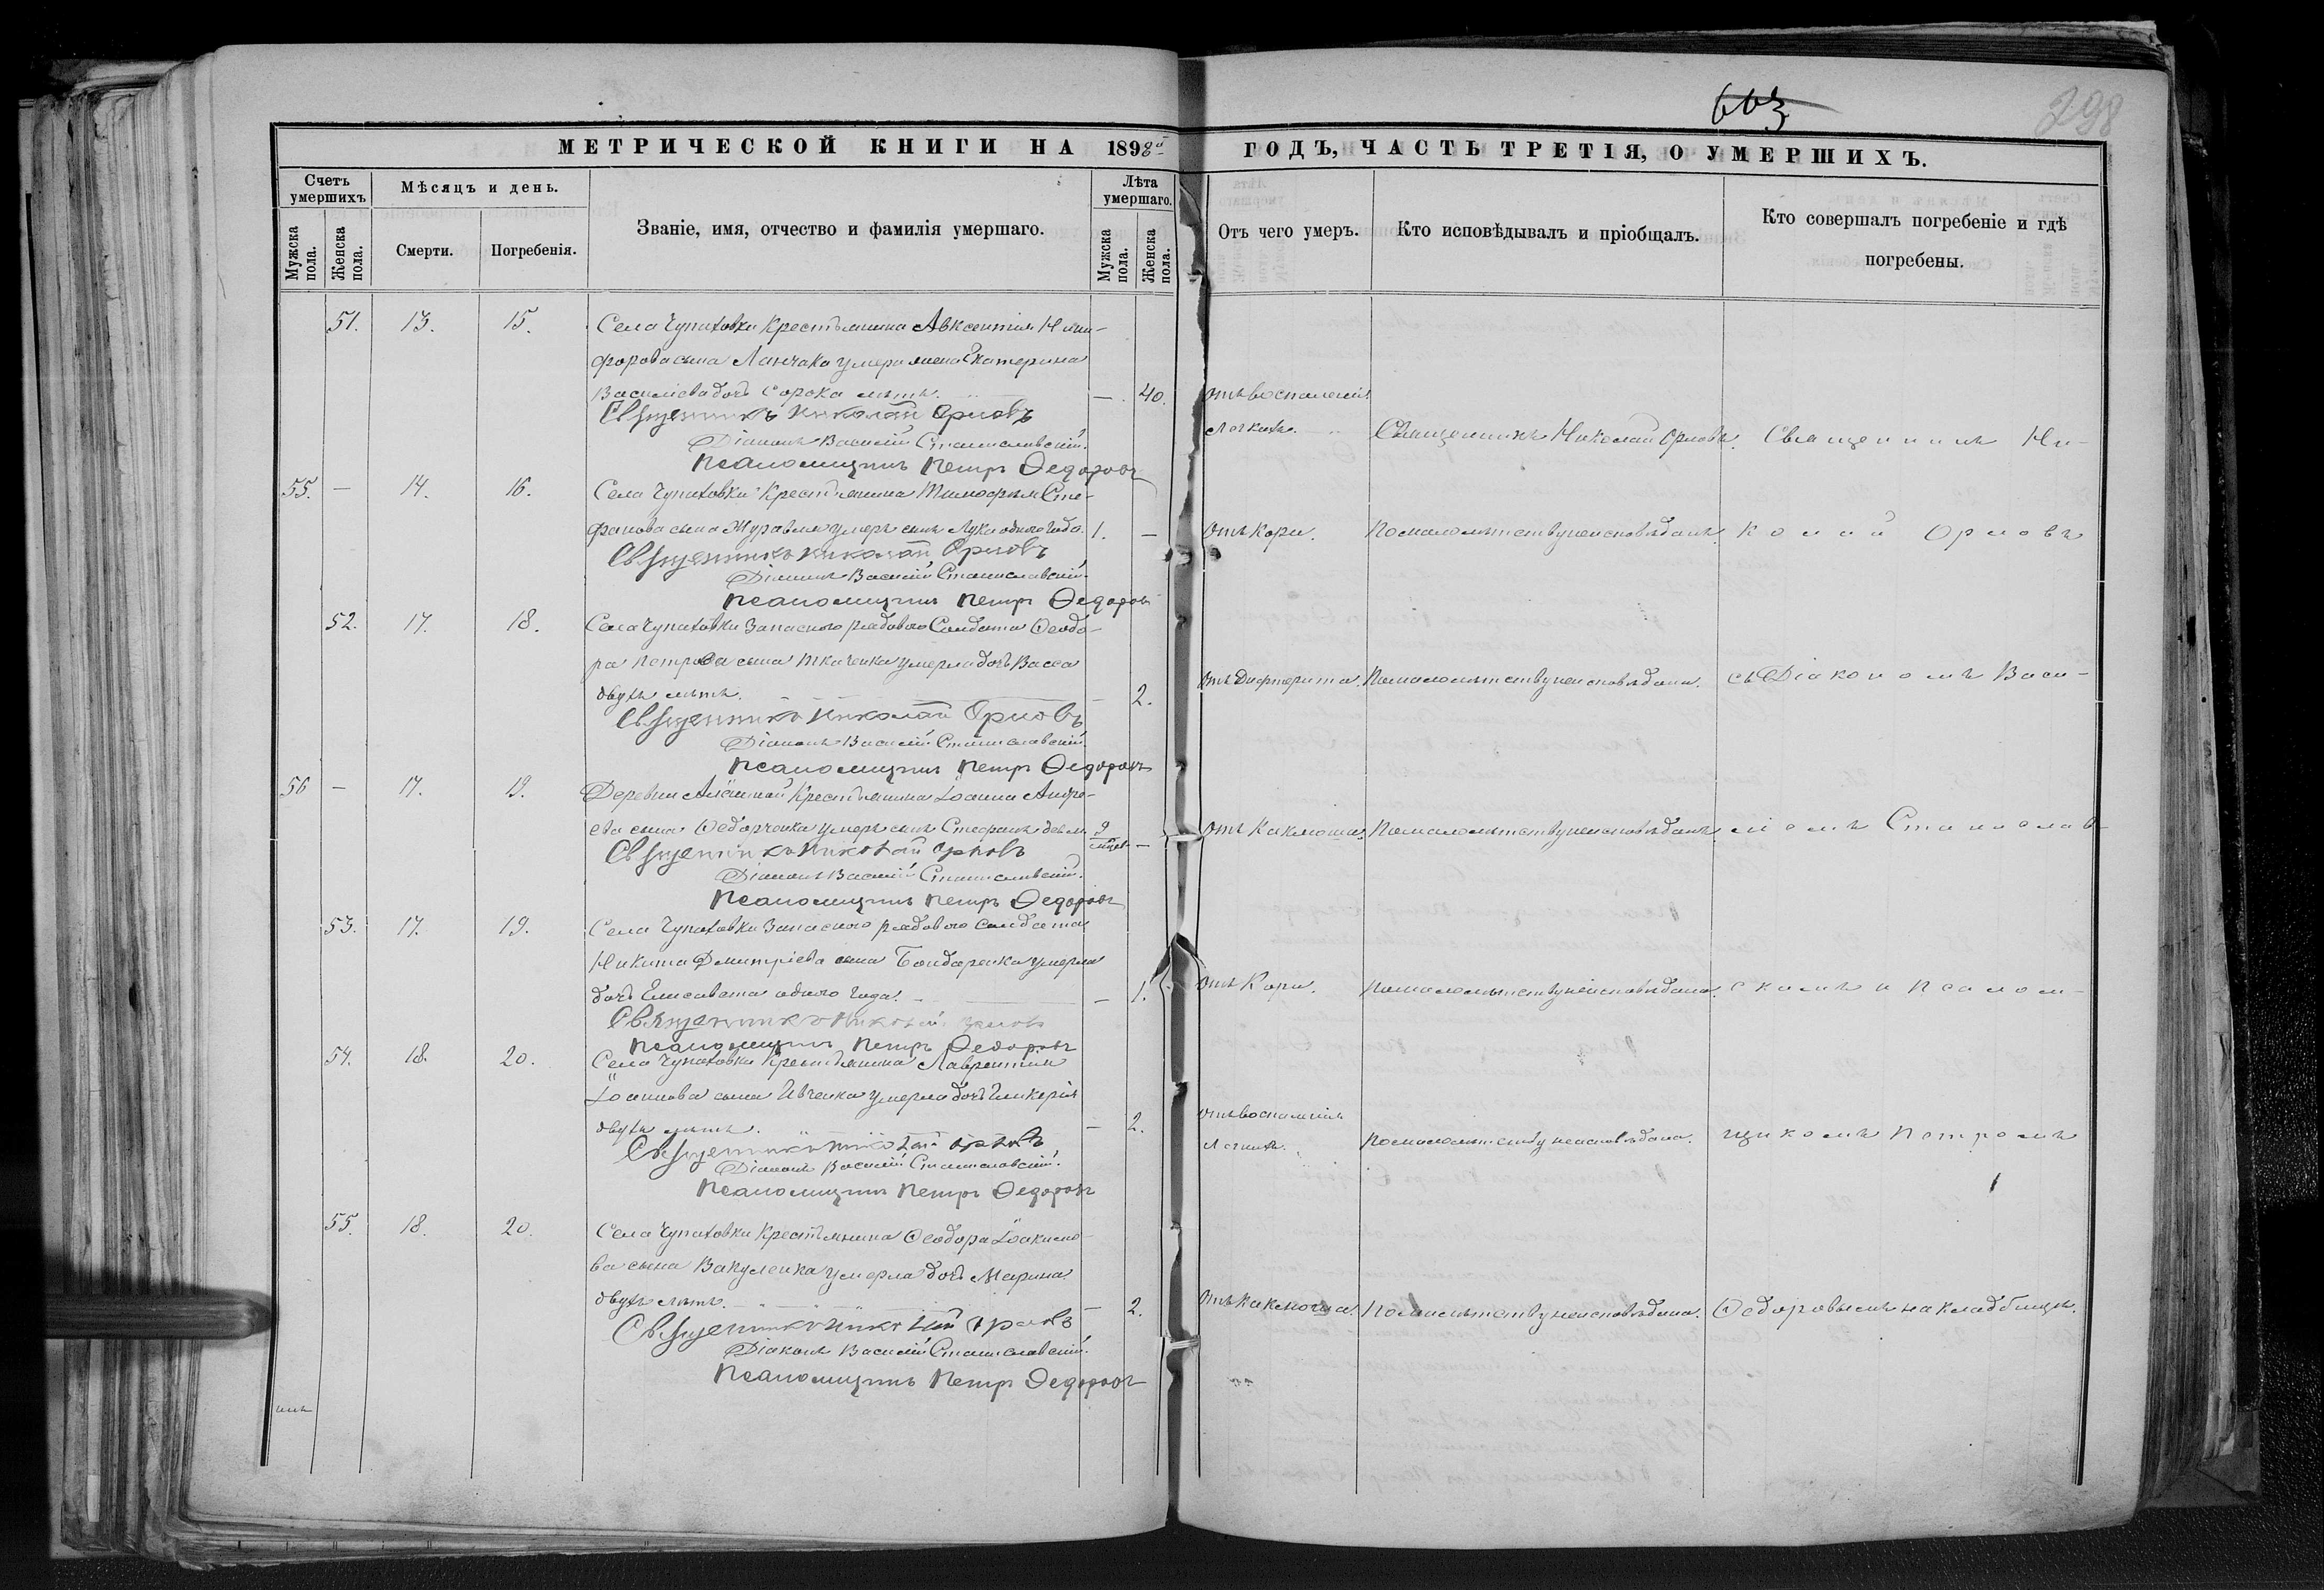 603
298
МЕТРИЧЕСКОЙ КНИГИ НА 1898й ГОДЪ, ЧАСТЬ ТРЕТІЯ, О УМЕРШИХЪ.
Счетъ умершихъ.
Мужска пола.
Женска пола.
Мѣсяцъ и день.
Смерти.
Погребенія.
Званіе, имя, отчество и фамилія умершаго.
Лѣта умершаго.
Мужска пола.
Женска пола.
Отъ чего умеръ.
Кто исповѣдывалъ и пріобщалъ.
Кто совершалъ погребеніе и гдѣ погребены.
51. 13. 15. Села Чупаховки Крестьянина Авксентія Ники-
форова сына Ланчака умерла жена Екатерина
Василіева дочь сорока лѣтъ. — 40. Отъ воспаленія
Священникъ Николай Орловъ
легкихъ. Священникъ Николай Орловъ. Священникъ Ни-
Діаконъ Василій Станиславскій.
Псаломщикъ Петръ Ѳедоровъ
55. — 14. 16. Села Чупаховки Крестьянина Тимофея Сте-
фанова сына Журавля умеръ сынъ Лука одного года. 1. — Отъ Кори. По малолѣтству неисповѣданъ. колай Орловъ
Священникъ Николай Орловъ
Діаконъ Василій Станиславскій.
Псаломщикъ Петръ Ѳедоровъ
52. 17. 18. Села Чупаховки Запасного рядового Солдата Ѳеодо-
ра Петрова сына Ткаченка умерла дочь Васса
двухъ лѣтъ. — 2. Отъ Дифтерита. По малолѣтству неисповѣдана. съ Діакономъ Васи-
Священникъ Николай Орловъ
Діаконъ Василій Станиславскій.
Псаломщикъ Петръ Ѳедоровъ
56 — 17. 19. Деревни Крестьянина Іоанна Андре-
ева сына Ѳедорченка умеръ сынъ Стефанъ дев.м. 9 мѣсяц. — Отъ Коклюша. По малолѣтству неисповѣданъ. ліемъ Станислав-
Священникъ Николай Орловъ
Діаконъ Василій Станиславскій.
Псаломщикъ Петръ Ѳедоровъ
53. 17. 19. Села Чупаховки Запасного рядового Солдата
Никита Дмитріева сына Бондаренка умерла
дочь Елисавета одного года. — 1. Отъ Кори. По малолѣтству неисповѣдана. скимъ и Псалом-
Священникъ Николай Орловъ
Псаломщикъ Петръ Ѳедоровъ
54. 18. 20. Села Чупаховки Крестьянина Лаврентія
Іоаннова сына Ивченка умерла дочь Гликерія
двухъ лѣтъ. — 2. Отъ воспаленія
легкихъ. По малолѣтству неисповѣдана. щикомъ Петромъ
Священникъ Николай Орловъ
Діаконъ Василій Станиславскій.
Псаломщикъ Петръ Ѳедоровъ
55. 18. 20. Села Чупаховки Крестьянина Ѳеодора Іоакимо-
ва сына Вакуленка умерла дочь Марина
двухъ лѣтъ. — 2. Отъ Коклюша. По малолѣтству неисповѣдана. Ѳедоровымъ на кладбищѣ.
Священникъ Николай Орловъ
Діаконъ Василій Станиславскій.
Псаломщикъ Петръ Ѳедоровъ